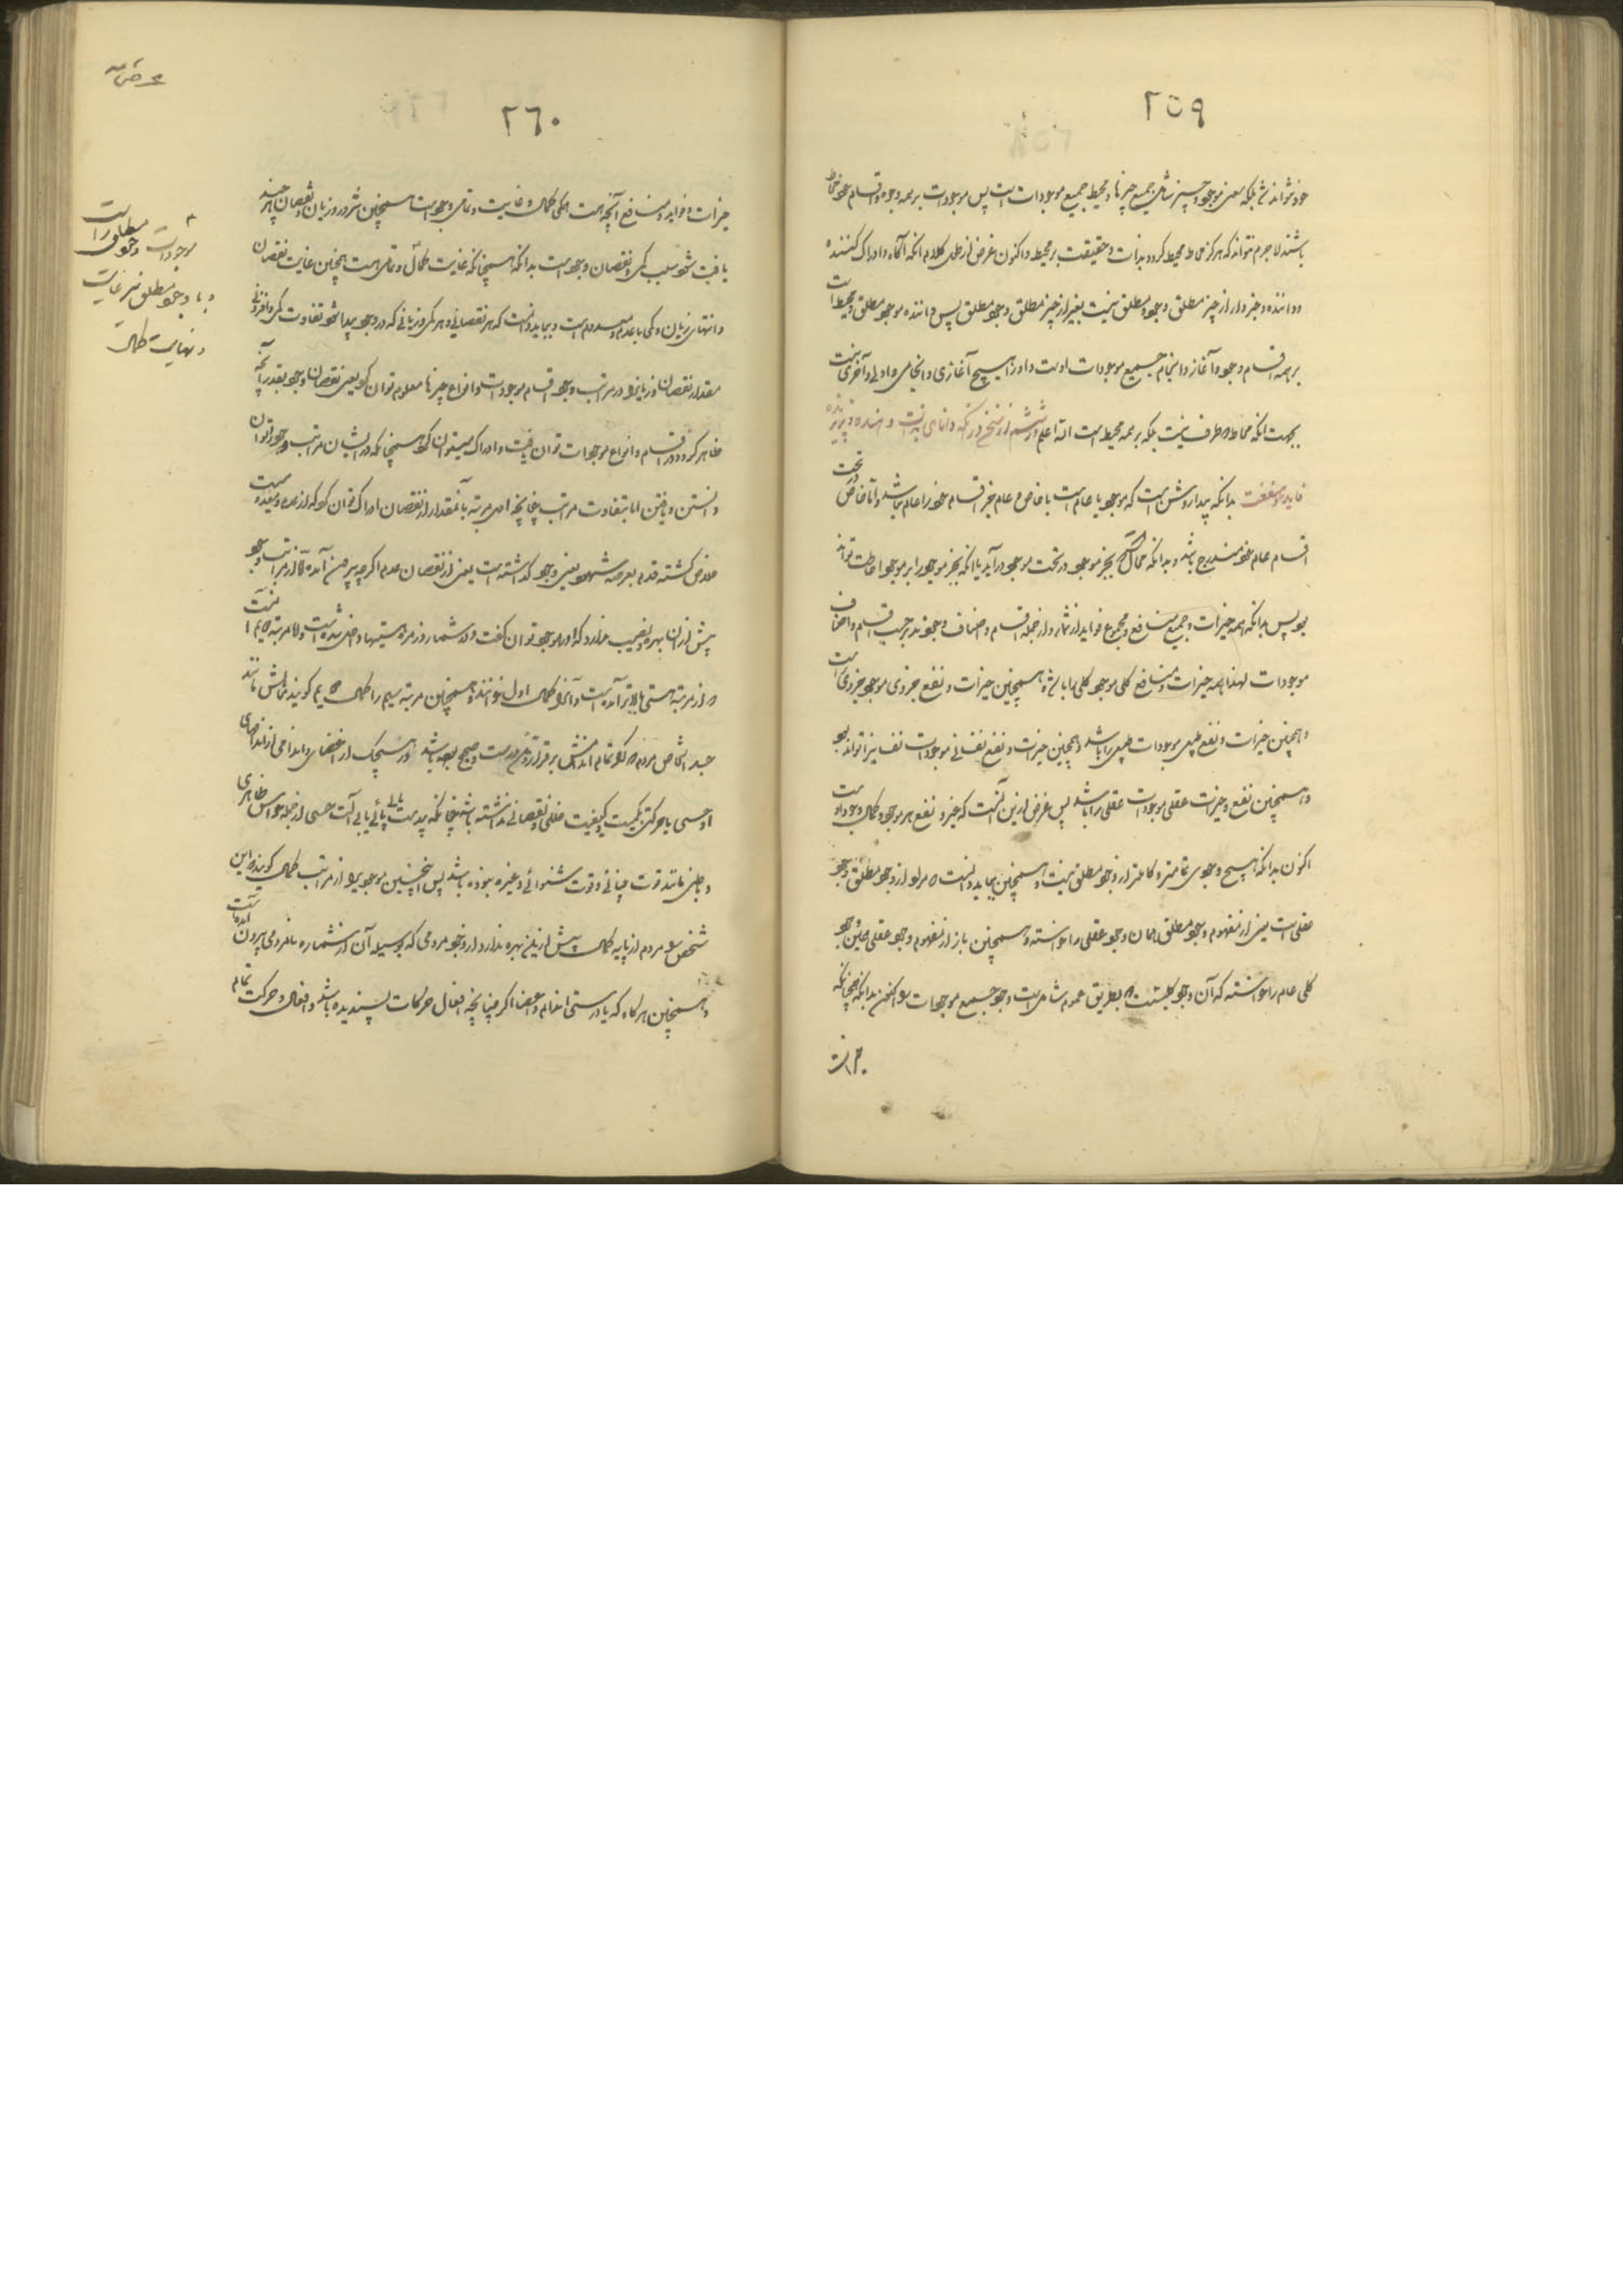 ٢٥٩
خود نتواند شد بلکه معنی موجود و چیز شامل جمیع چیزها و محیط جمیع موجودات است پس موجودات بر همه وجوه و اقسام خود محاط
باشند لاجرم نتواند که هرگز محاط محیط گردد بذات و حقیقت بر محیط و اکنون غرض از طی کلام آنکه آگاه و ادراک کننده
و داننده و خبردار از چیز مطلق و وجود مطلق نیست بغیر از چیز مطلق و وجود مطلق پس داننده موجود مطلق و محیط است
بر همه اقسام وجود و آغاز و انجام جمیع موجودات اوست و او را هیچ آغازی و انجامی و اولی و آخری نیست
بجهت آنکه محاط دو طرف نیست بلکه بر همه محیط است الله اعلم در ششم از سخن در آنکه دانای
فایده و منفعت بدانکه پیدا و روشن است که موجود یا عام است یا خاص و عام خبر اقسام خود را عام باشد و اما خاص در تحت
اقسام عام خود مندرج باشد و بدانکه محال است که بجز موجود در تحت موجود درآید یا آنکه بجز موجود را بر موجود احاطت تواند
بود پس بدانکه همه خیرات و جمیع منافع و مجموع فواید از شمار و از جمله اقسام و اصناف وجودند بر حسب اقسام و اصناف
موجودات لهذا همه خیرات و منافع کلی موجود کلی را باشد و همچنین خیرات و نفع جزوی موجود جزوی است
و همچنین خیرات و نفع طبیعی موجودات طبیعی را باشد و همچنین خیرات و نفع نفسانی موجودات نفسانی را تواند بود
و همچنین نفع و خیرات عقلی موجودات عقلی را باشد پس غرض ازین آنست که خیر و نفع هر موجود کمال وجود اوست
اکنون بدانکه هیچ وجودی تمامتر و کاملتر از وجود مطلق نیست و همچنین بباید دانست که مراد از وجود مطلق وجود
عقلی است یعنی از مفهوم وجود مطلق همان وجود عقلی را خواسته و همچنین باز از مفهوم وجود عقلی همین وجود
کلی عام را خواسته که آن وجود کلیست که بطریق عموم شامل است وجود جمیع موجودات را اکنون بدانکه همچنانکه
خیرات
٢٦٠
خیرات و فواید و منافع آنچه هست همگی کمال و غایت و تمامی وجود است همچنین شرور و زیان و نقصان هر چند
یافت شود بسبب کمی و نقصان وجود است بدانکه همچنانکه غایت کمال و تمامی هست همچنین غایت نقصان
و انتهای زیان و کمی با عدم و معدوم است و بباید دانست که هر نقصانی و هر کمی و زیانی که در وجود پیدا شود تفاوت کمی و افزونی
مقدار نقصان و زیان را در مراتب وجود اقسام موجودات و انواع چیزها معلوم توان کرد یعنی نقصان وجود بقدر آنچه
ظاهر گردد در اقسام و انواع موجودات توان یافت و ادراک میتوان کرد همچنانکه در ایشان مراتب وجود را توان
دانستن و یافتن اما بتفاوت مراتب چنانچه اول مرتبه با مقدار از نقصان ادراک توان کرد که از عدم و معدومیت
خلاص گشته قدم بعرصه شهود یعنی وجود گذاشته است یعنی از نقصان عدم اگرچه بیرون آمده اما از مراتب وجود
بیش از آن بهره و نصیب ندارد که او را موجود توان گفت و در شمار و زمره هستیها داخل شده است و اما مرتبه دویم آنست
که از مرتبه هستی بالاتر آمده است و آن را کمال اول خوانند و همچنین مرتبه سیم را کمال دویم گویند مثالش مانند
جسد اشخاص مردم که گو تمام اندامش برقرار و تن درست و صحیح بوده باشد و در هیچیک از اعضای و اندامی از اندامهای
او حسی یا حرکتی بکمیت و کیفیت خللی و نقصانی نداشته باشد چنانکه بی دست یا بی پائی یا بی آلت حسی از جمله حواس ظاهری
و باطنی مانند قوت بینائی و قوت شنوائی و غیره نبوده باشد پس اینچنین موجودی را از مراتب کمال گویند که این
شخص را مردم از پایه کمال بیش ازین بهره ندارد از وجود مردمی که بوسیله آن از شماره نامردمی بیرون آمده است
و همچنین هرگاه که یا درستی اندام و اعضا اگر چنانچه افعال حرکات پسندیده باشد و افعال و حرکت تمام
موجودات وجود مطلق راست
و با وجود مطلق نیز غایت
و نهایت کمال